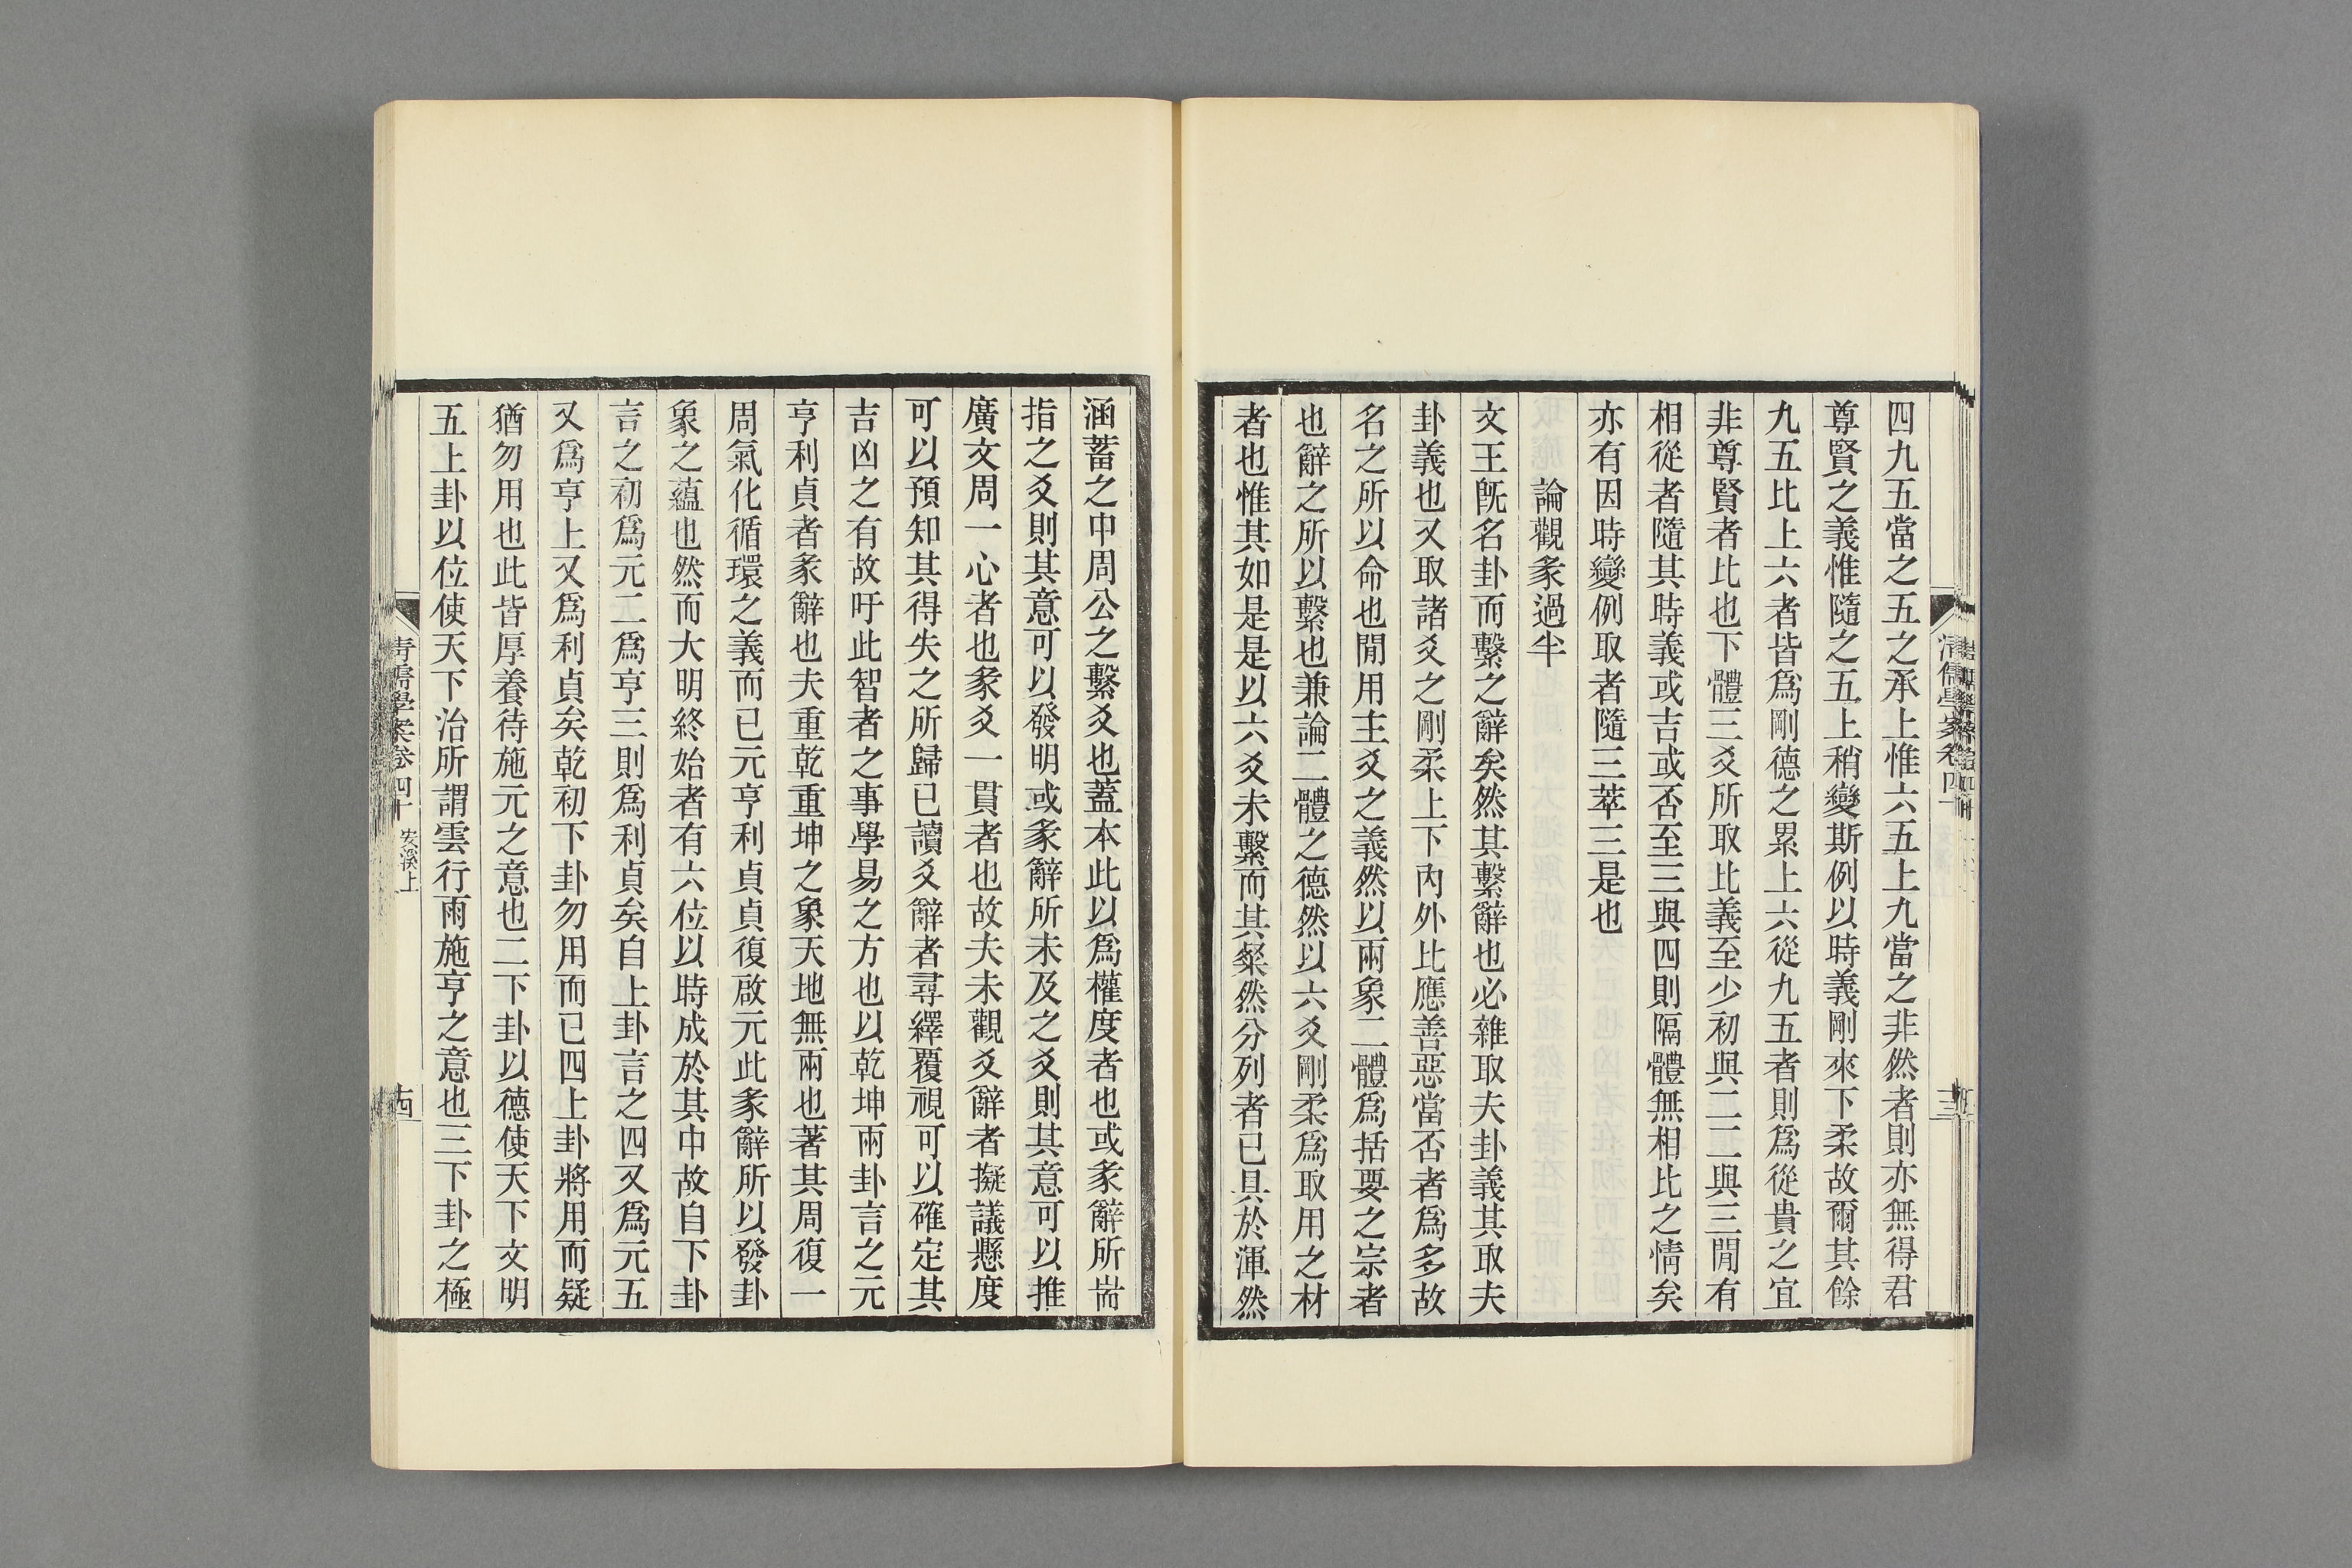 四九五當之五之承上惟六五上九當之非然者則亦無得君
尊賢之義惟隨之五上稍變斯例以時義剛來下柔故爾其餘
九五比上六者皆爲剛德之累上六從九五者則爲從貴之宜
非尊賢者比也下體三爻所取比義至少初與二二與三閒有
相從者隨其時義或吉或否至三與四則隔體無相比之情矣
亦有因時變例取者隨三萃三是也
論觀彖過半
文王旣名卦而繫之辭矣然其繫辭也必雜取夫卦義其取夫
卦義也又取諸爻之剛柔上下內外比應善惡當否者爲多故
名之所以命也閒用主爻之義然以兩象二體爲括要之宗者
也辭之所以繫也兼論二體之德然以六爻剛柔爲取用之材
者也惟其如是是以六爻未繫而其粲然分列者已具於渾然
涵蓄之中周公之繫爻也蓋本此以爲權度者也或彖辭所耑
指之爻則其意可以發明或彖辭所未及之爻則其意可以推
廣文周一心者也彖爻一貫者也故夫未觀爻辭者擬議懸度
可以預知其得失之所歸已讀爻辭者尋繹覆視可以確定其
吉凶之有故吁此智者之事學易之方也以乾坤兩卦言之元
亨利貞者彖辭也夫重乾重坤之象天地無兩也著其周復一
周氣化循環之義而已元亨利貞貞復啟元此彖辭所以發卦
象之蘊也然而大明終始者有六位以時成於其中故自下卦
言之初爲元二爲亨三則爲利貞矣自上卦言之四又爲元五
又爲亨上又爲利貞矣乾初下卦勿用而已四上卦將用而疑
猶勿用也此皆厚養待施元之意也二下卦以德使天下文明
五上卦以位使天下治所謂雲行雨施亨之意也三下卦之極
清儒學案卷四十 安溪上